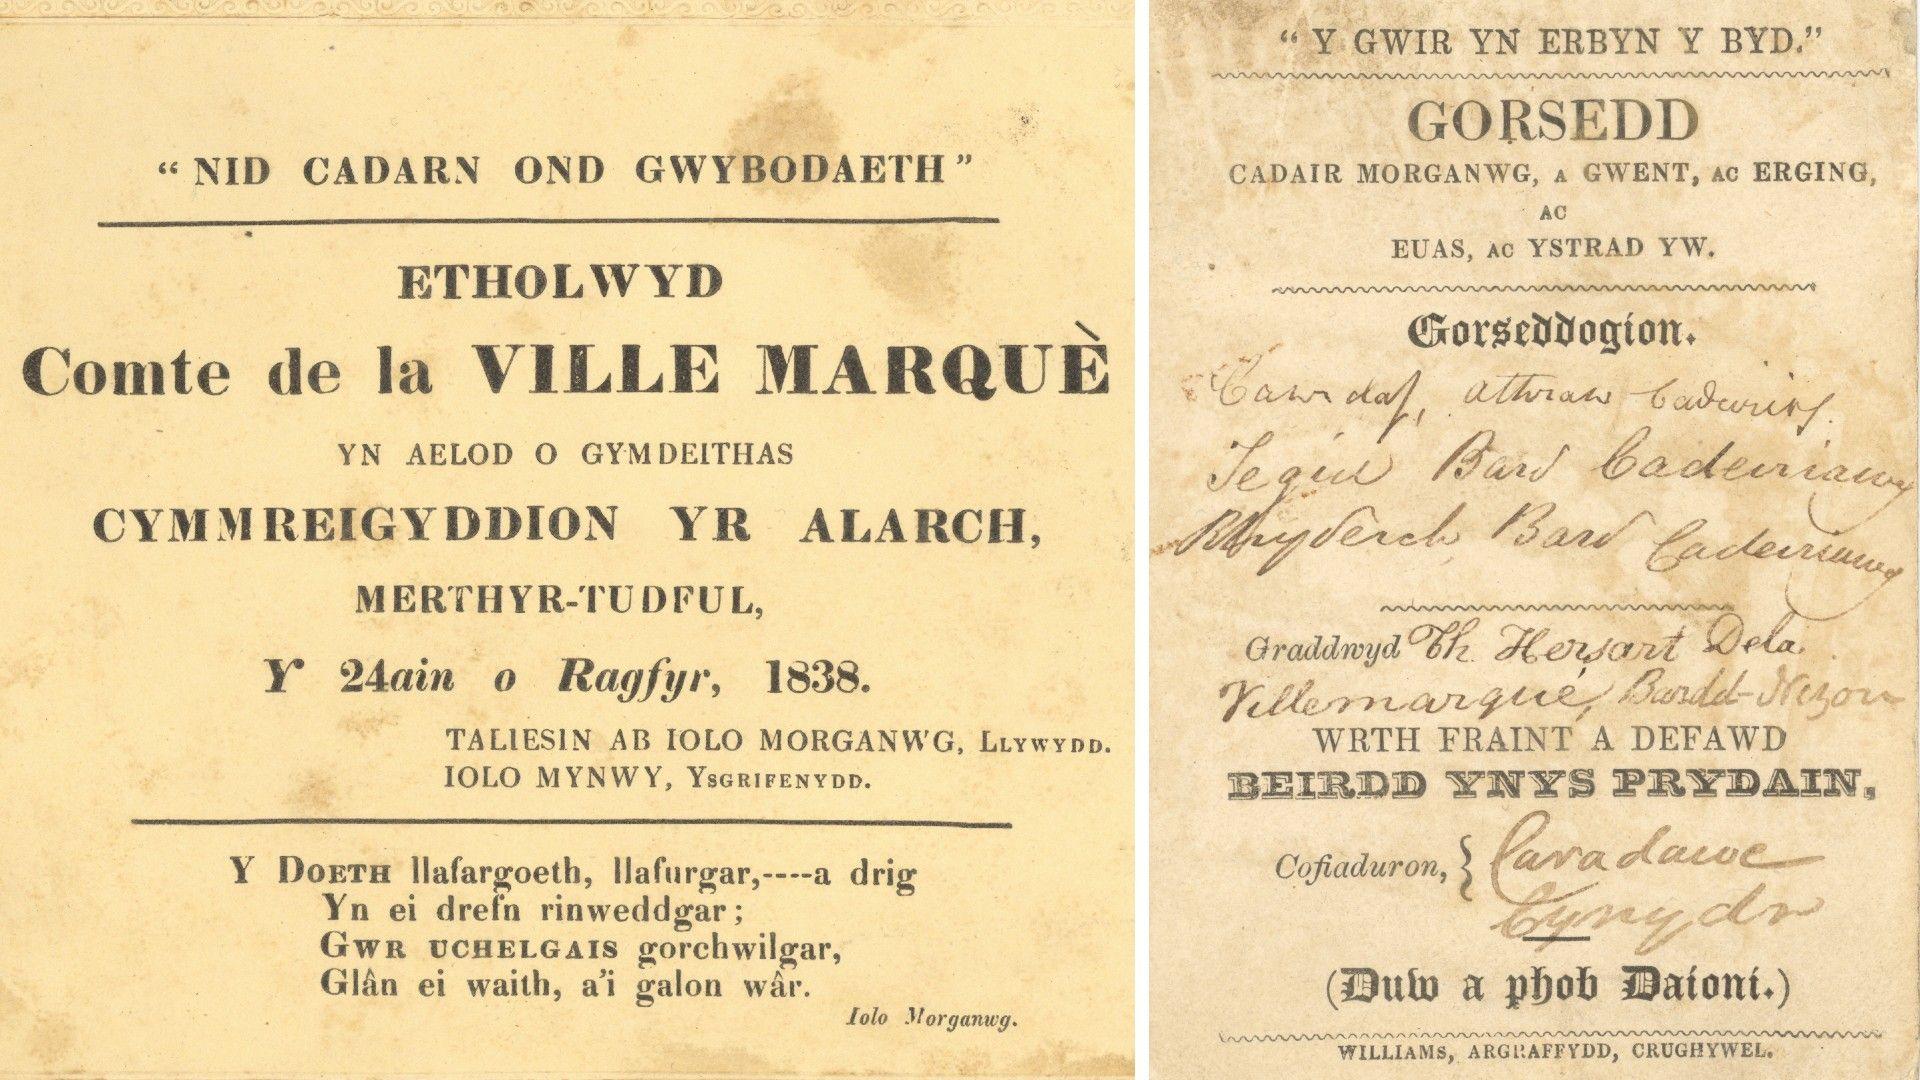 “ NID CADARN OND GWYBODAETH ”
ETHOLWYD
Comte de la VILLE MARQUÈ
YN AELOD O GYMDEITHAS
CYMMREIGYDDION YR ALARCH,
MERTHYR-TUDFUL,
Y 24ain o Ragfyr, 1838.
TALIESIN AB IOLO MORGANWG, LLYWYDD.
IOLO MYNWY, YSGRIFENYDD.
Y DOETH llafargoeth, llafurgar,----a drig
Yn ei drefn rinweddgar;
GWR UCHELGAIS gorchwilgar,
Glân ei waith, a'i galon wâr.
Iolo Morganwg.
“ Y GWIR YN ERBYN Y BYD.”
GORSEDD
CADAIR MORGANWG, A GWENT, AC ERGING,
AC
EUAS, AC YSTRAD YW.
Gorseddogion.
Cawrdaf, athraw
Tegid Bard Cadeiriawg
Rhydderch Bard Cadeiriawg
Graddwyd Th. Hersart Dela
Villemarqué, Bardd-Nizon
WRTH FRAINT A DEFAWD
BEIRDD YNYS PRYDAIN,
Cofiaduron, } Caradawc
Cynydr
(Duw a phob Daioni.)
WILLIAMS, ARGRAFFYDD, CRUGHYWEL.